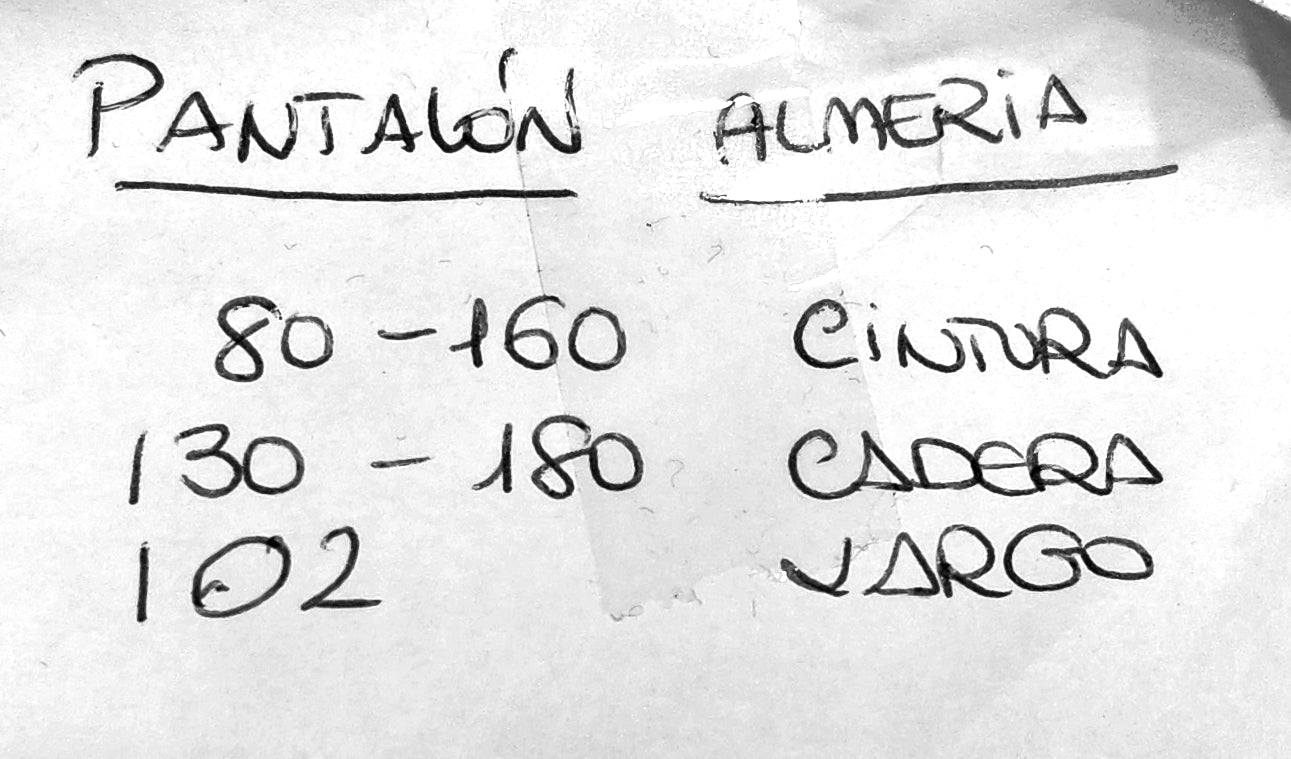 PANTALÓN ALMERiA
80 - 160 CiNTURA
130 - 180 CADERA
102 LARGO